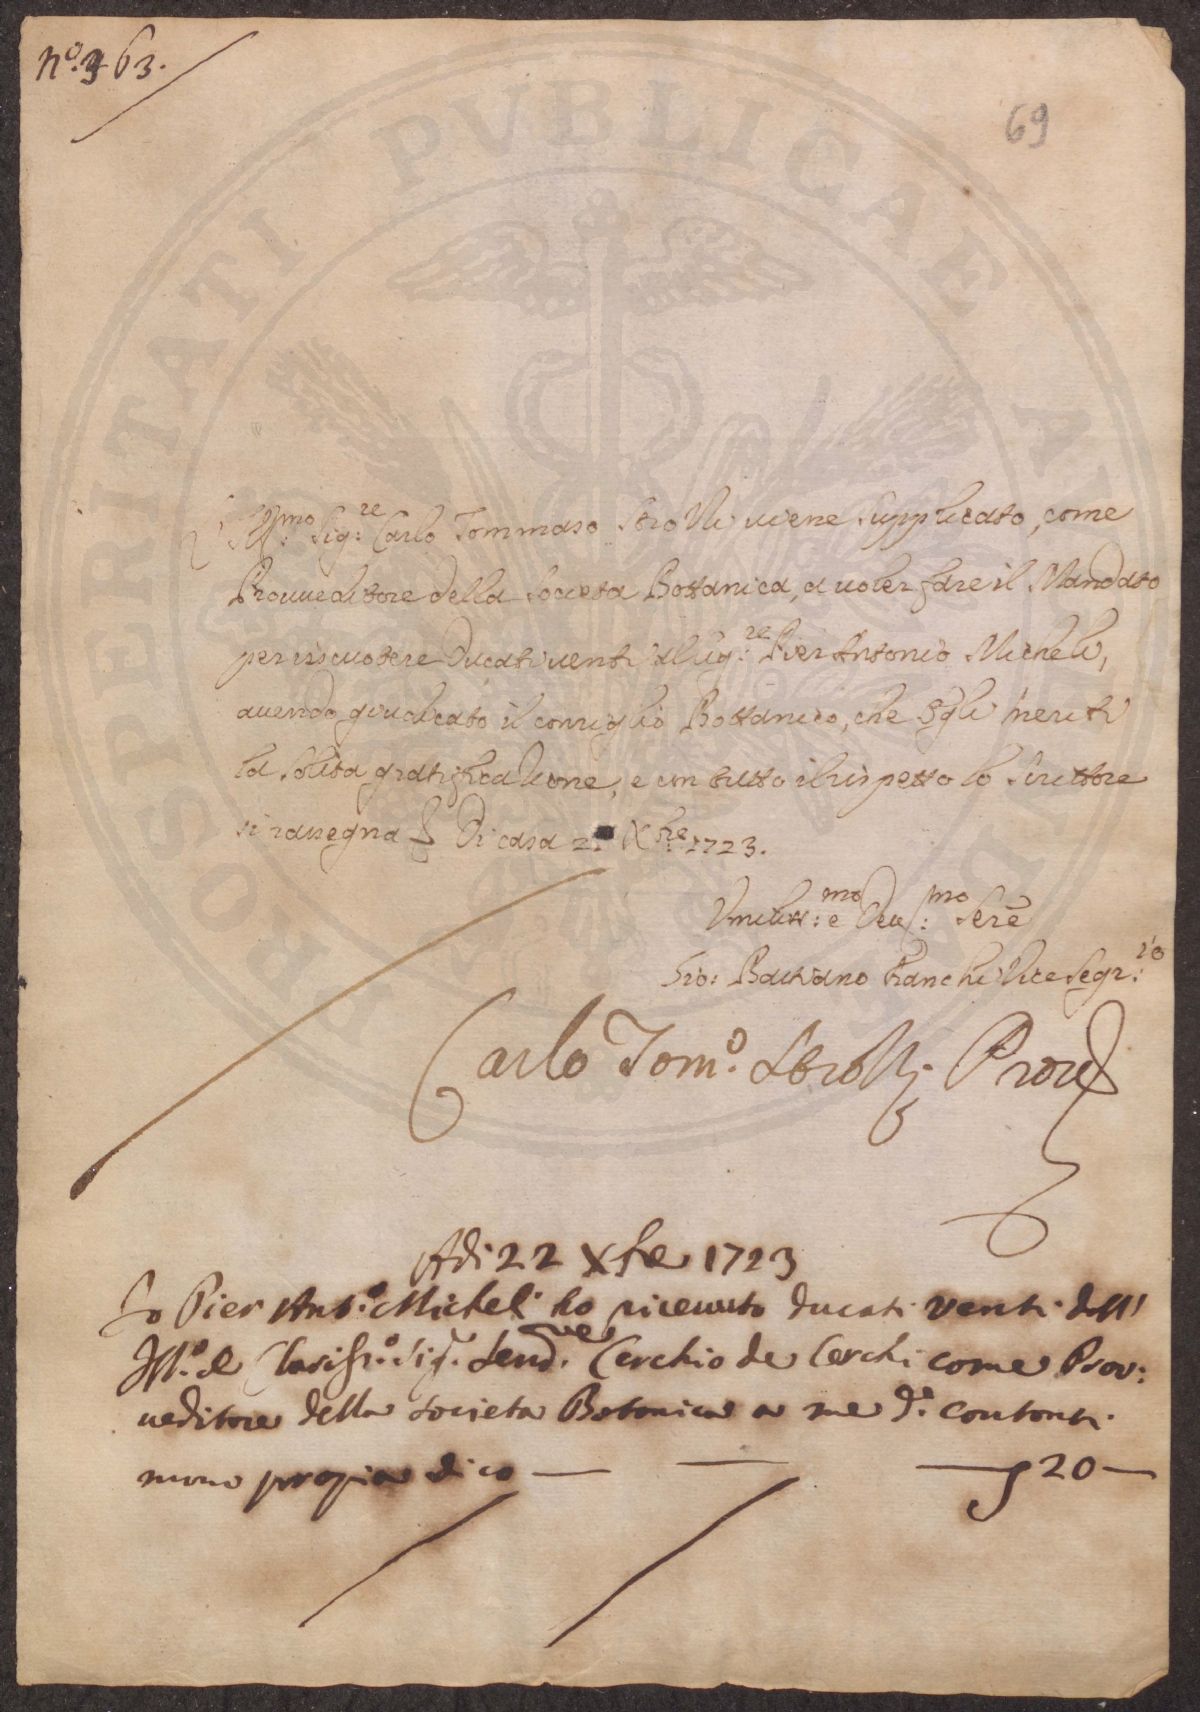 N.º 363.
69
PROSPERITATI PVBLICAE AVGENDAE
L' Ill.mo Sig.re Carlo Tommaso Strozzi viene supplicato, come
Provveditore della Società Bottanica, a voler fare il Mandato
per riscuotere Ducati venti al Sig.re Pier Antonio Micheli,
avendo giudicato il consiglio Bottanico, che Egli meriti
la solita gratificazione, e con tutto il rispetto lo scrittore
si rassegna Di casa Xbre 1723.
Umiliss:mo e Dev:mo Serre
Gio: Bastiano Franchi Vice Segr:rio
Carlo Tom.º Strozzi Proved
Adi 22 Xbre 1723
Io Pier Ant.º Micheli ho ricevuto ducati venti dell'
Ill.º e Clariss.º Sig. Send.re Cerchio de Cerchi come Prov:
veditore della Società Botonica a me d.º contonti
mano propia dico — — — 20 —